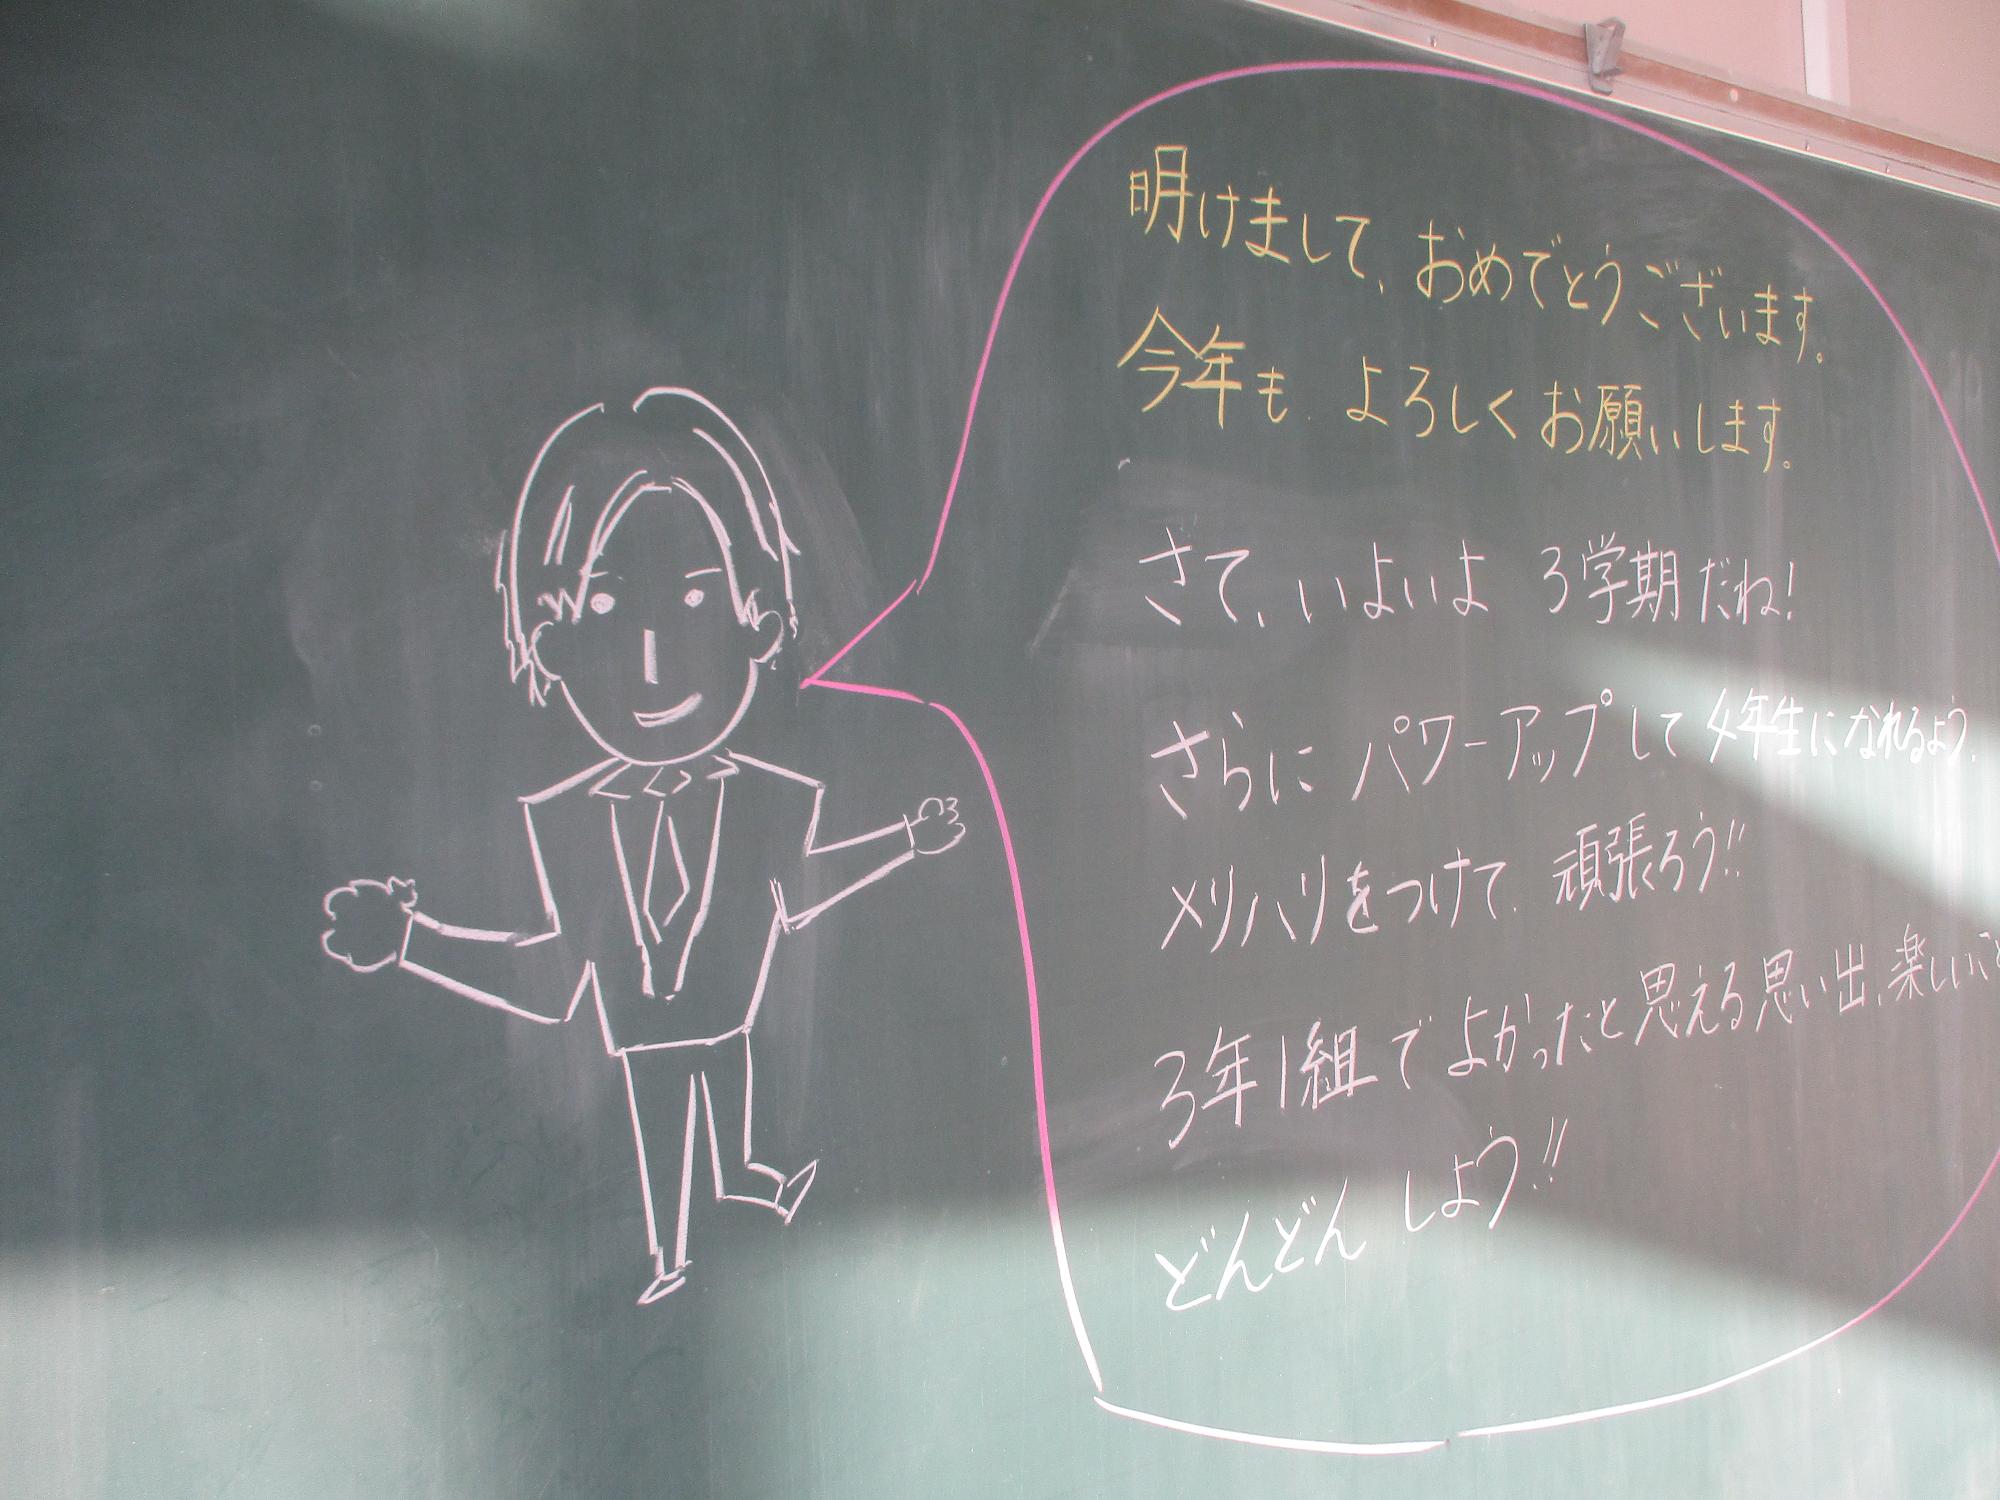 明けまして、おめでとうございます。
今年も、よろしくお願いします。
さて、いよいよ3学期だね!
さらにパワーアップして4年生になれるよう、
メリハリをつけて、頑張ろう!!
3年1組でよかったと思える思い出、楽しいこと
どんどんしよう!!